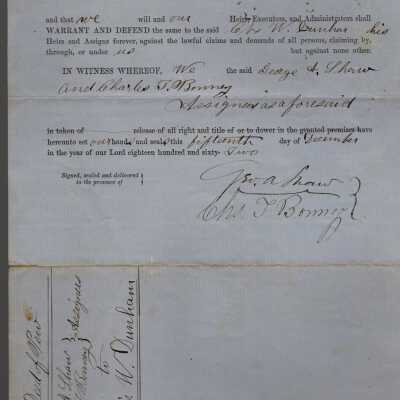 and that we will and our Heirs, Executors, and Administrators shall
WARRANT AND DEFEND the same to the said Chs W. Dunham his
Heirs and Assigns forever, against the lawful claims and demands of all persons, claiming by,
through, or under us but against none other.
IN WITNESS WHEREOF, We the said George A. Shaw
and Charles T. Bonney
Assignees as aforesaid
in token of release of all right and title of or to dower in the granted premises have
hereunto set our hands and seals this fifteenth day of December
in the year of our Lord eighteen hundred and sixty- Two
Signed, sealed and delivered
in the presence of
Geo. A Shaw
Chs. T Bonney
Deed of Pew
A. Shaw
Bonney
Assignees
to
W. Dunham